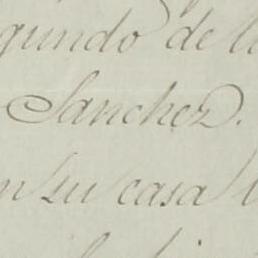 gundo de l
Sanchez.
n su casa